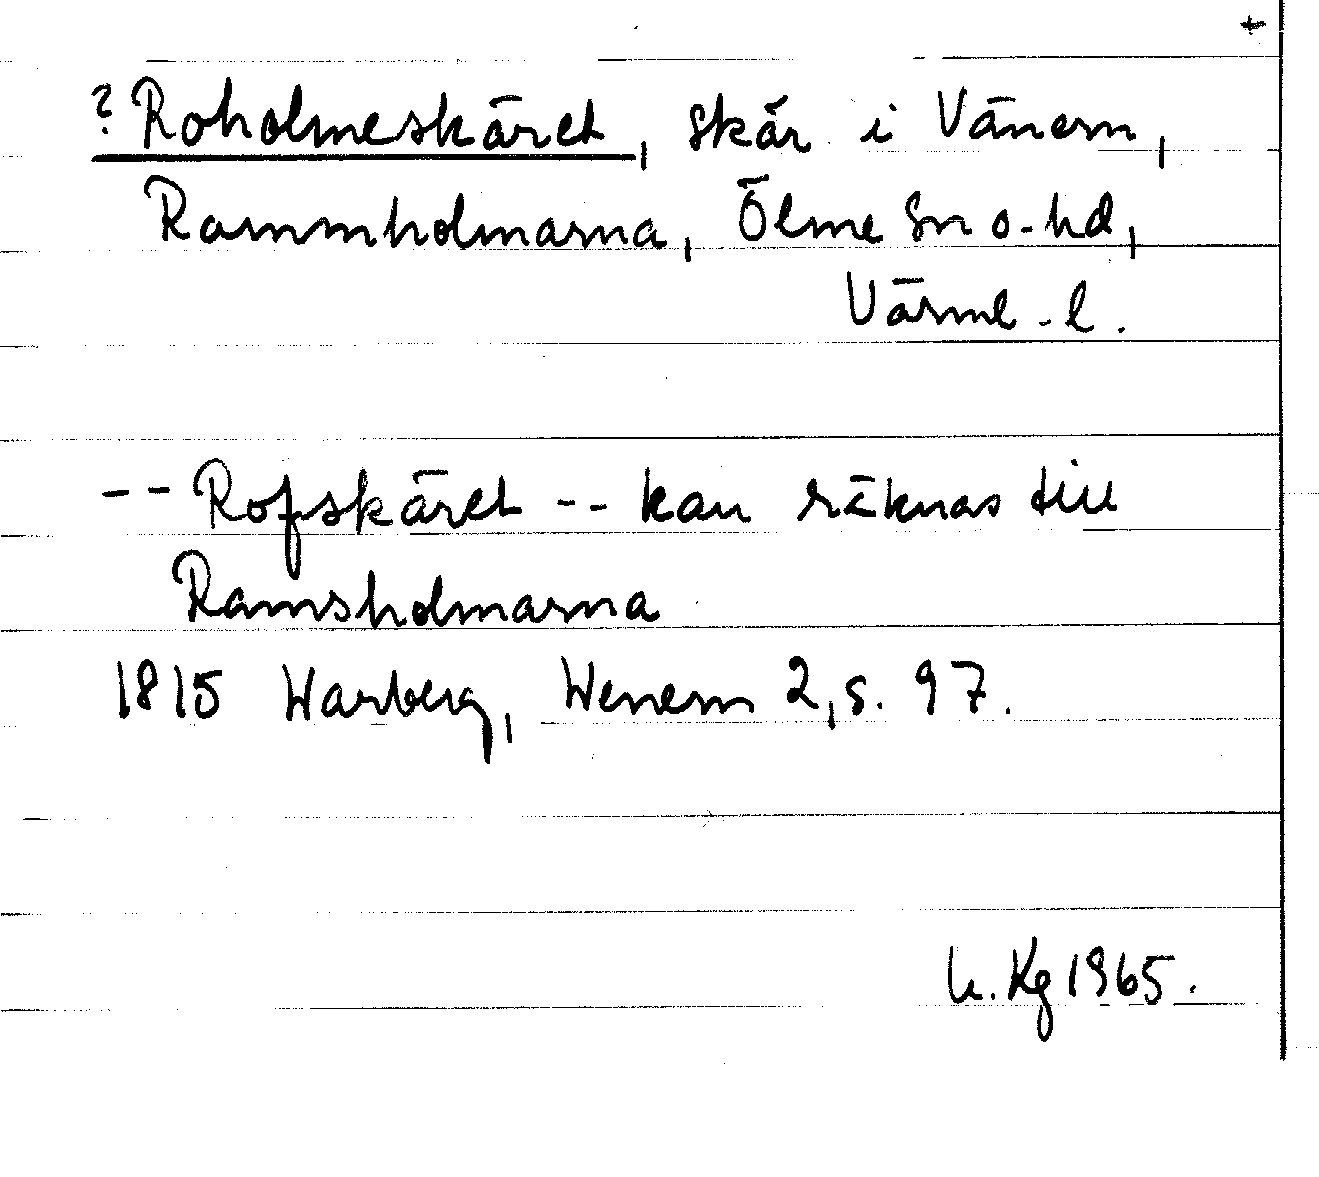 +
? Roholmeskäret, skär i Vänern,
Rammholmarna, Ölme sn o. hd,
Värml. l.
-- Rofskäret -- kan räknas till
Ramsholmarna
1815 Warberg, Wenern 2, s. 97.
Kg 1965.